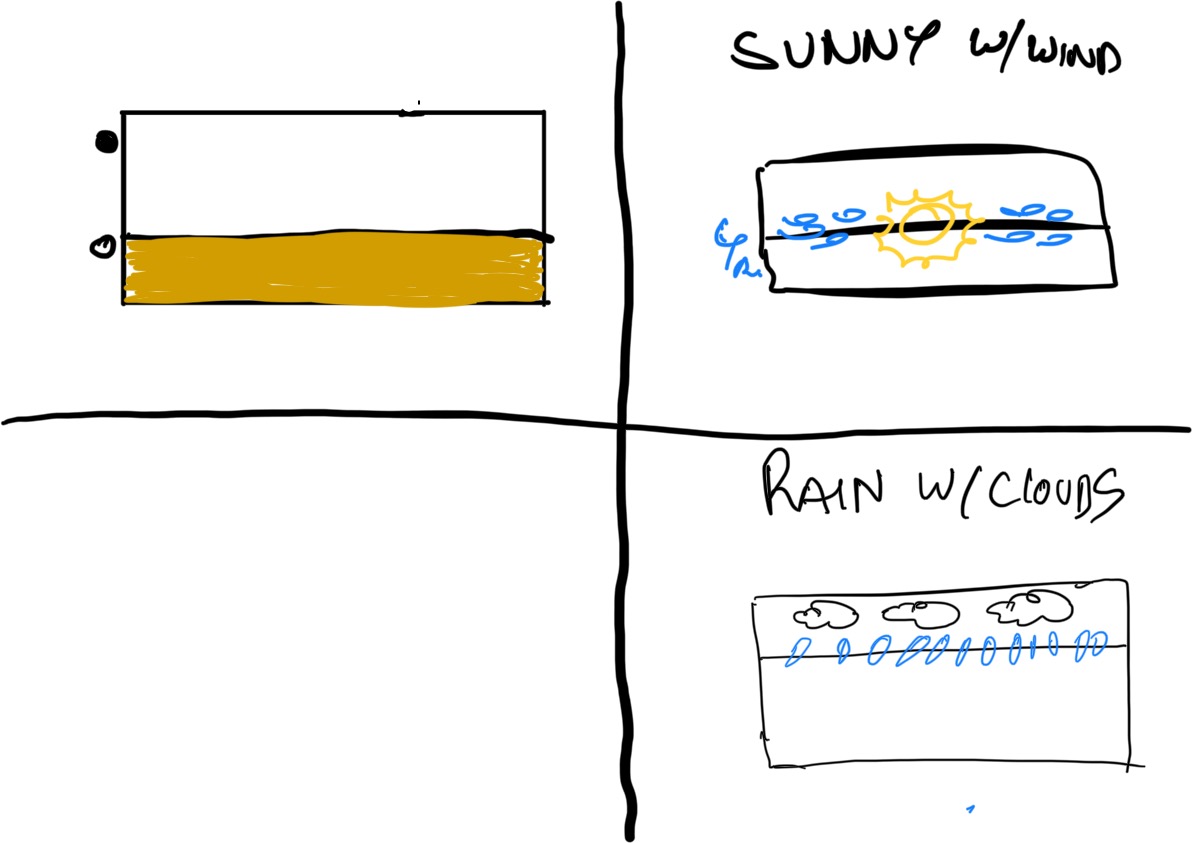 SUNNY W/WIND
RAIN W/CLOUDS